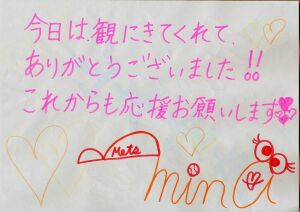 今日は、観にきてくれて、
ありがとうございました!!
これからも応援お願いします
Mets
mina